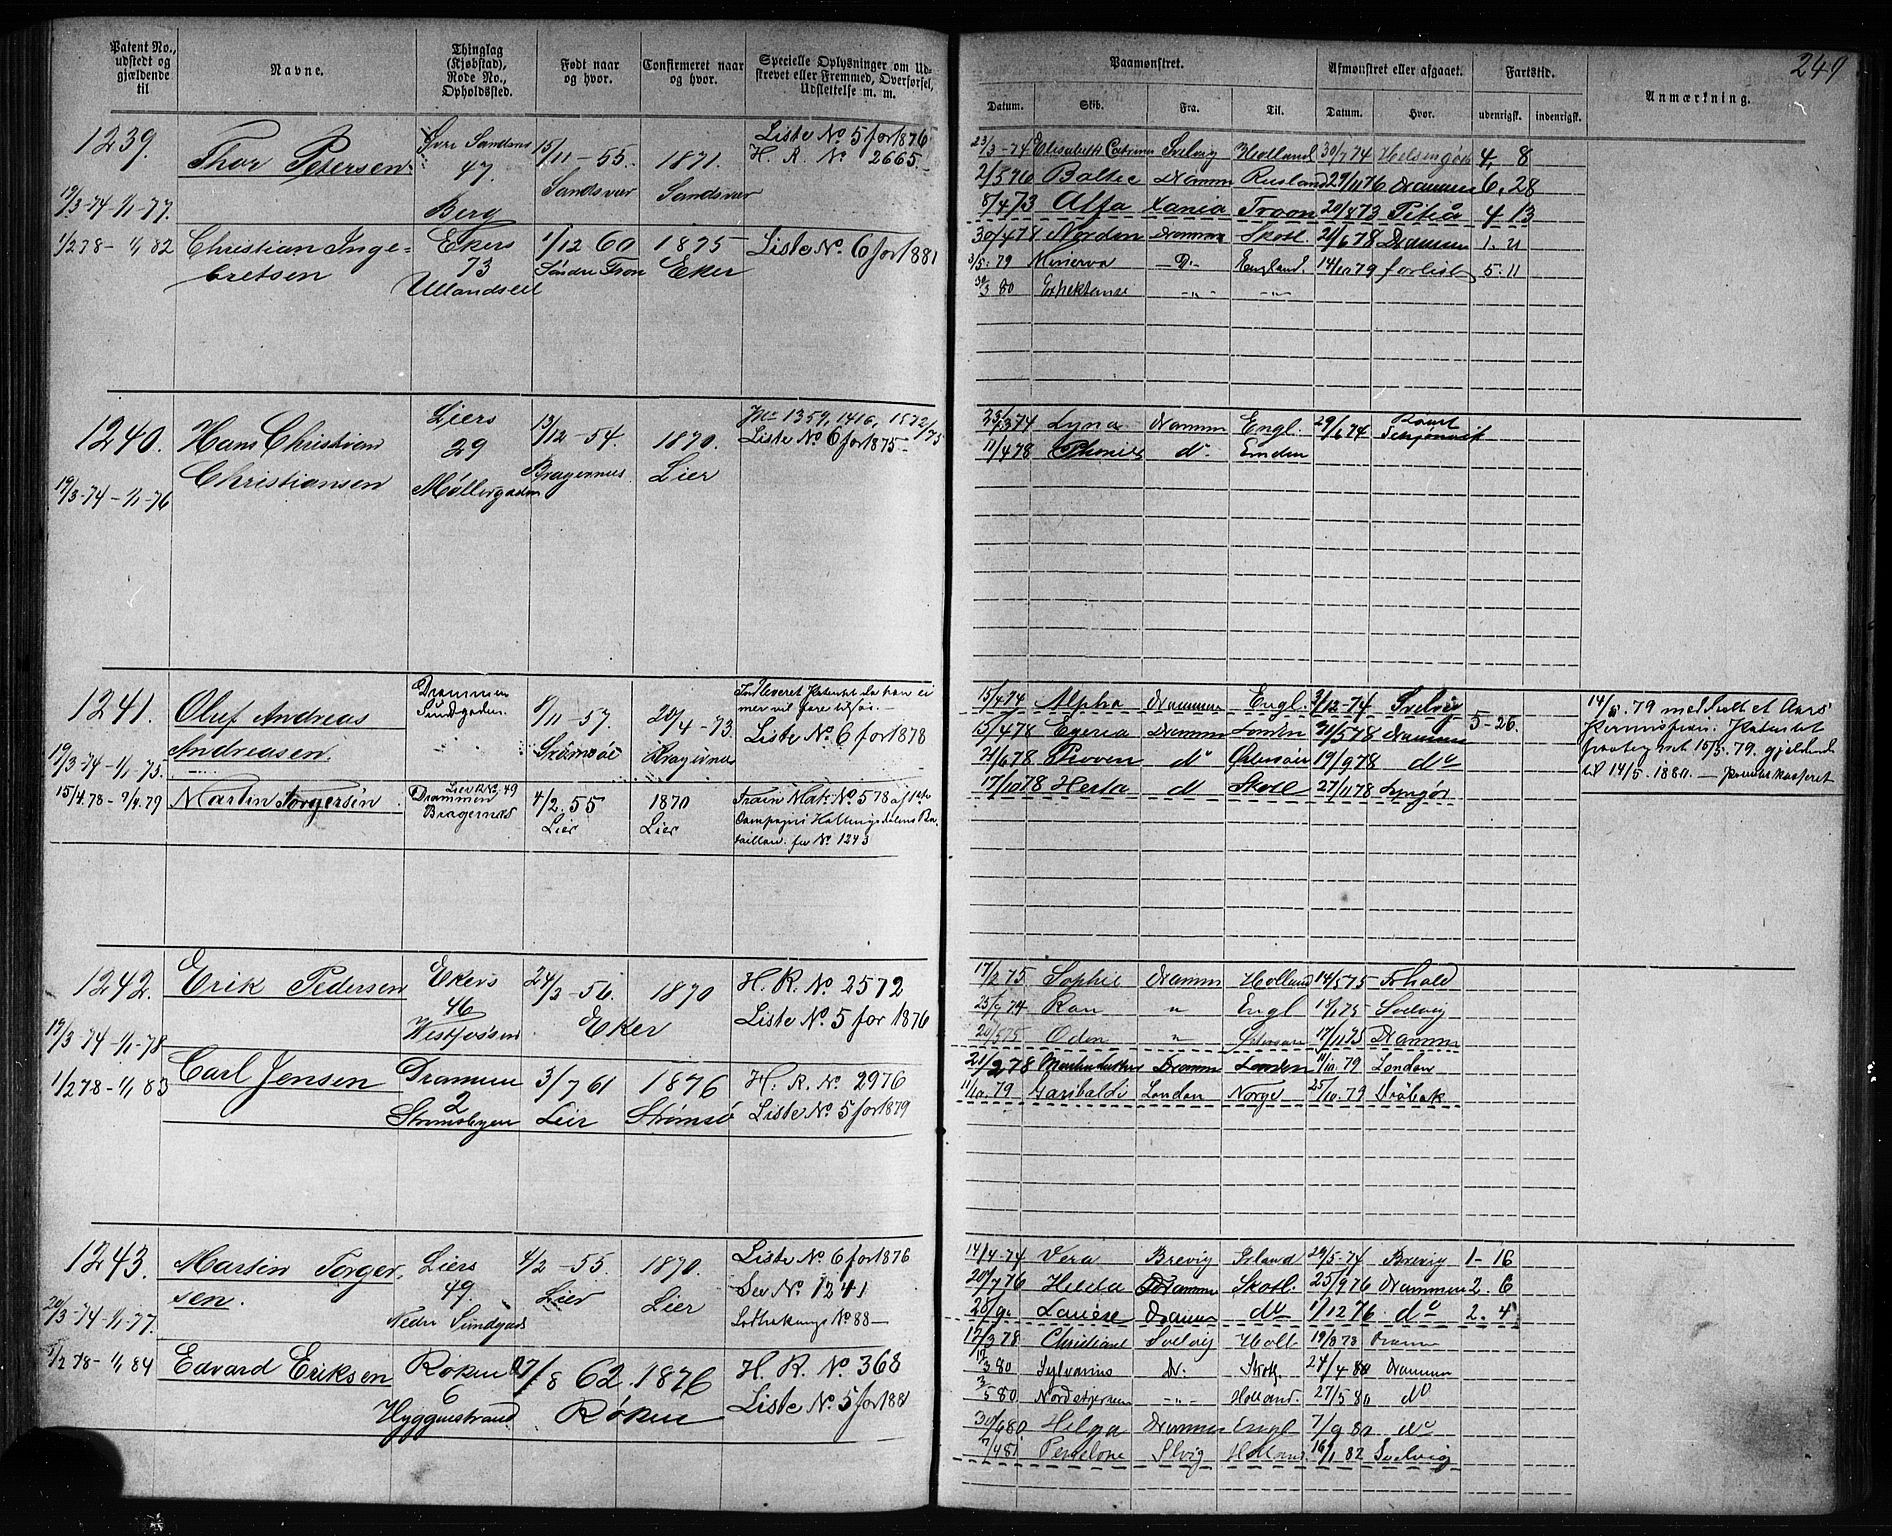 249
Patent No., udstedt og gjældende til
Navne.
Thinglag (Kjøbstad), Rode No., Opholdssted.
Født naar og hvor.
Confirmeret naar og hvor.
Specielle Oplysninger om Udstrevet eller Fremmed, Overførsel, Udslettelse m. m.
Paamønstret.
Datum. Skib. Fra. Til.
Afmønstret eller afgaaet.
Datum. Hvor.
Fartstid.
udenrigsk. indenrigsk.
Anmærkning.
1239. Thor Petersen 47. Berg 15/11-55. Sandsvær 1871. Sandsvær
Liste No 5 for 1876
H. R. No 2665.
19/3-74-1/1-77.
23/3-74 Elisabeth Catrine Svelvig Holland 30/7 74 Helsingør 4, 8
Baltic Dramm Rusland 29/11 76 Drammen 6, 28
8/4 73 Alfa Xania Troon 20/8 73 Piteå 4 13
1/2 78- 1/1 82 Christian Inge-
bretsen
Ekers 73 1/12 60 Søndre Fron 1875 Eker Liste No 6 for 1881
30/4 78 Norden Dramm Skotl. 21/6 78 Drammen 1. 21
3/5. 79 Minerva Do England. 14/10 79 forlist 5. 11
30/3 80 Expektanse -„- -„-
1240. Hans Christian
Christiansen
Liers 29 Møllergaden 13/12-54. Bragernæs 1870. Lier
No 1359, 1416, 1572/75
Liste No 6 for 1875-
19/3-74-1/1-76
23/3 74 Lyna Dramm Engl. 29/6 74
11/4 78 do Emden
1241. Oluf Andreas
Andreasen.
Drammen Sundgaden. 6/11-57. Strømsøe 20/4-73. Bragernæs
Indleveret Patentet da han ei
mer vil fare tilsøs.
Liste No 6 for 1878
19/3-74-1/1-75.
15/4 74 Alpha Drammen Engl. 3/12-74 Svelvig
15/4 78 Egeria Dramm London 20/5 78 Drammen 5-26.
21/6 78 Proven do Østersøen 19/9 78 do
17/10 78 Herta do Skotl 27/11 78 Lyngør
14/5. 79 meddelt et Aars
Permission. Patentet
15/5. 79. gjeldende
til 14/5. 1880.
15/4.78- 1/4.79 Martin Torgersen
Lier R No. 49 Drammen Bragernæs 4/2 55 Lier 1870 Lier
Train Mat. No. 578 af 1ste
Compagni Hallingdalens Ba-
taillon. før No. 1243
1242. Erik Pedersen Ekers 46 Westfossen 24/2-56. Eker 1870
H. R. No 2572
Liste No. 5 for 1876
19/3-74-1/1-78
17/2 75 Sophie Dramm Holland 14/5 75 Fr hald
25/9 74 Ran „ Engl 18/1 75 Svelvig
20/5 75 Oden „ Østersøen 17/11 75 Dramm
1/2 78- 1/1 83 Carl Jensen Drammen 2 Strømsbyen 3/7 61 Lier 1876 Strømsø
H. R. No. 2976
Liste No. 5 for 1879
21/2 78 Martin Luther Dramm London 11/10. 79 London
11/10. 79 Garibaldi London Norge 25/10. 79 Drøbak
1243. Martin Torger-
sen.
Liers 49. Nedre Sundgade 4/2-55. Lier 1870. Lier
Liste No. 6 for 1876
Sev No. 1241
No 88-
20/3-74-1/1-77.
14/4-74 Vera Brevig Island 29/5-74 Brevig 1-16
20/7 76 Helda Dramm Skotl. 25/9 76 Drammen 2. 6
Louise Dramm do 1/12 76 do 2. 4
1/2 78- 1/1 84 Edvard Eriksen Røken 6 Hyggenstrand 27/8 62. Røken 1876
H. R. No. 368
Liste No. 5 for 1881
12/3 78 Christiane Svelvig Holl 19/8 78 Dramm
19/3 80 Sylvanus Dr. Skotl. 24/4 80 Drammen
3/5 80 Nordstjernen -„- Holland. 27/5 80 do
30/6 80 Helga Drammen Engl 7/9 80 do
7/4 81 Penelope Slvig Holland. 16/1 82 Svelvig